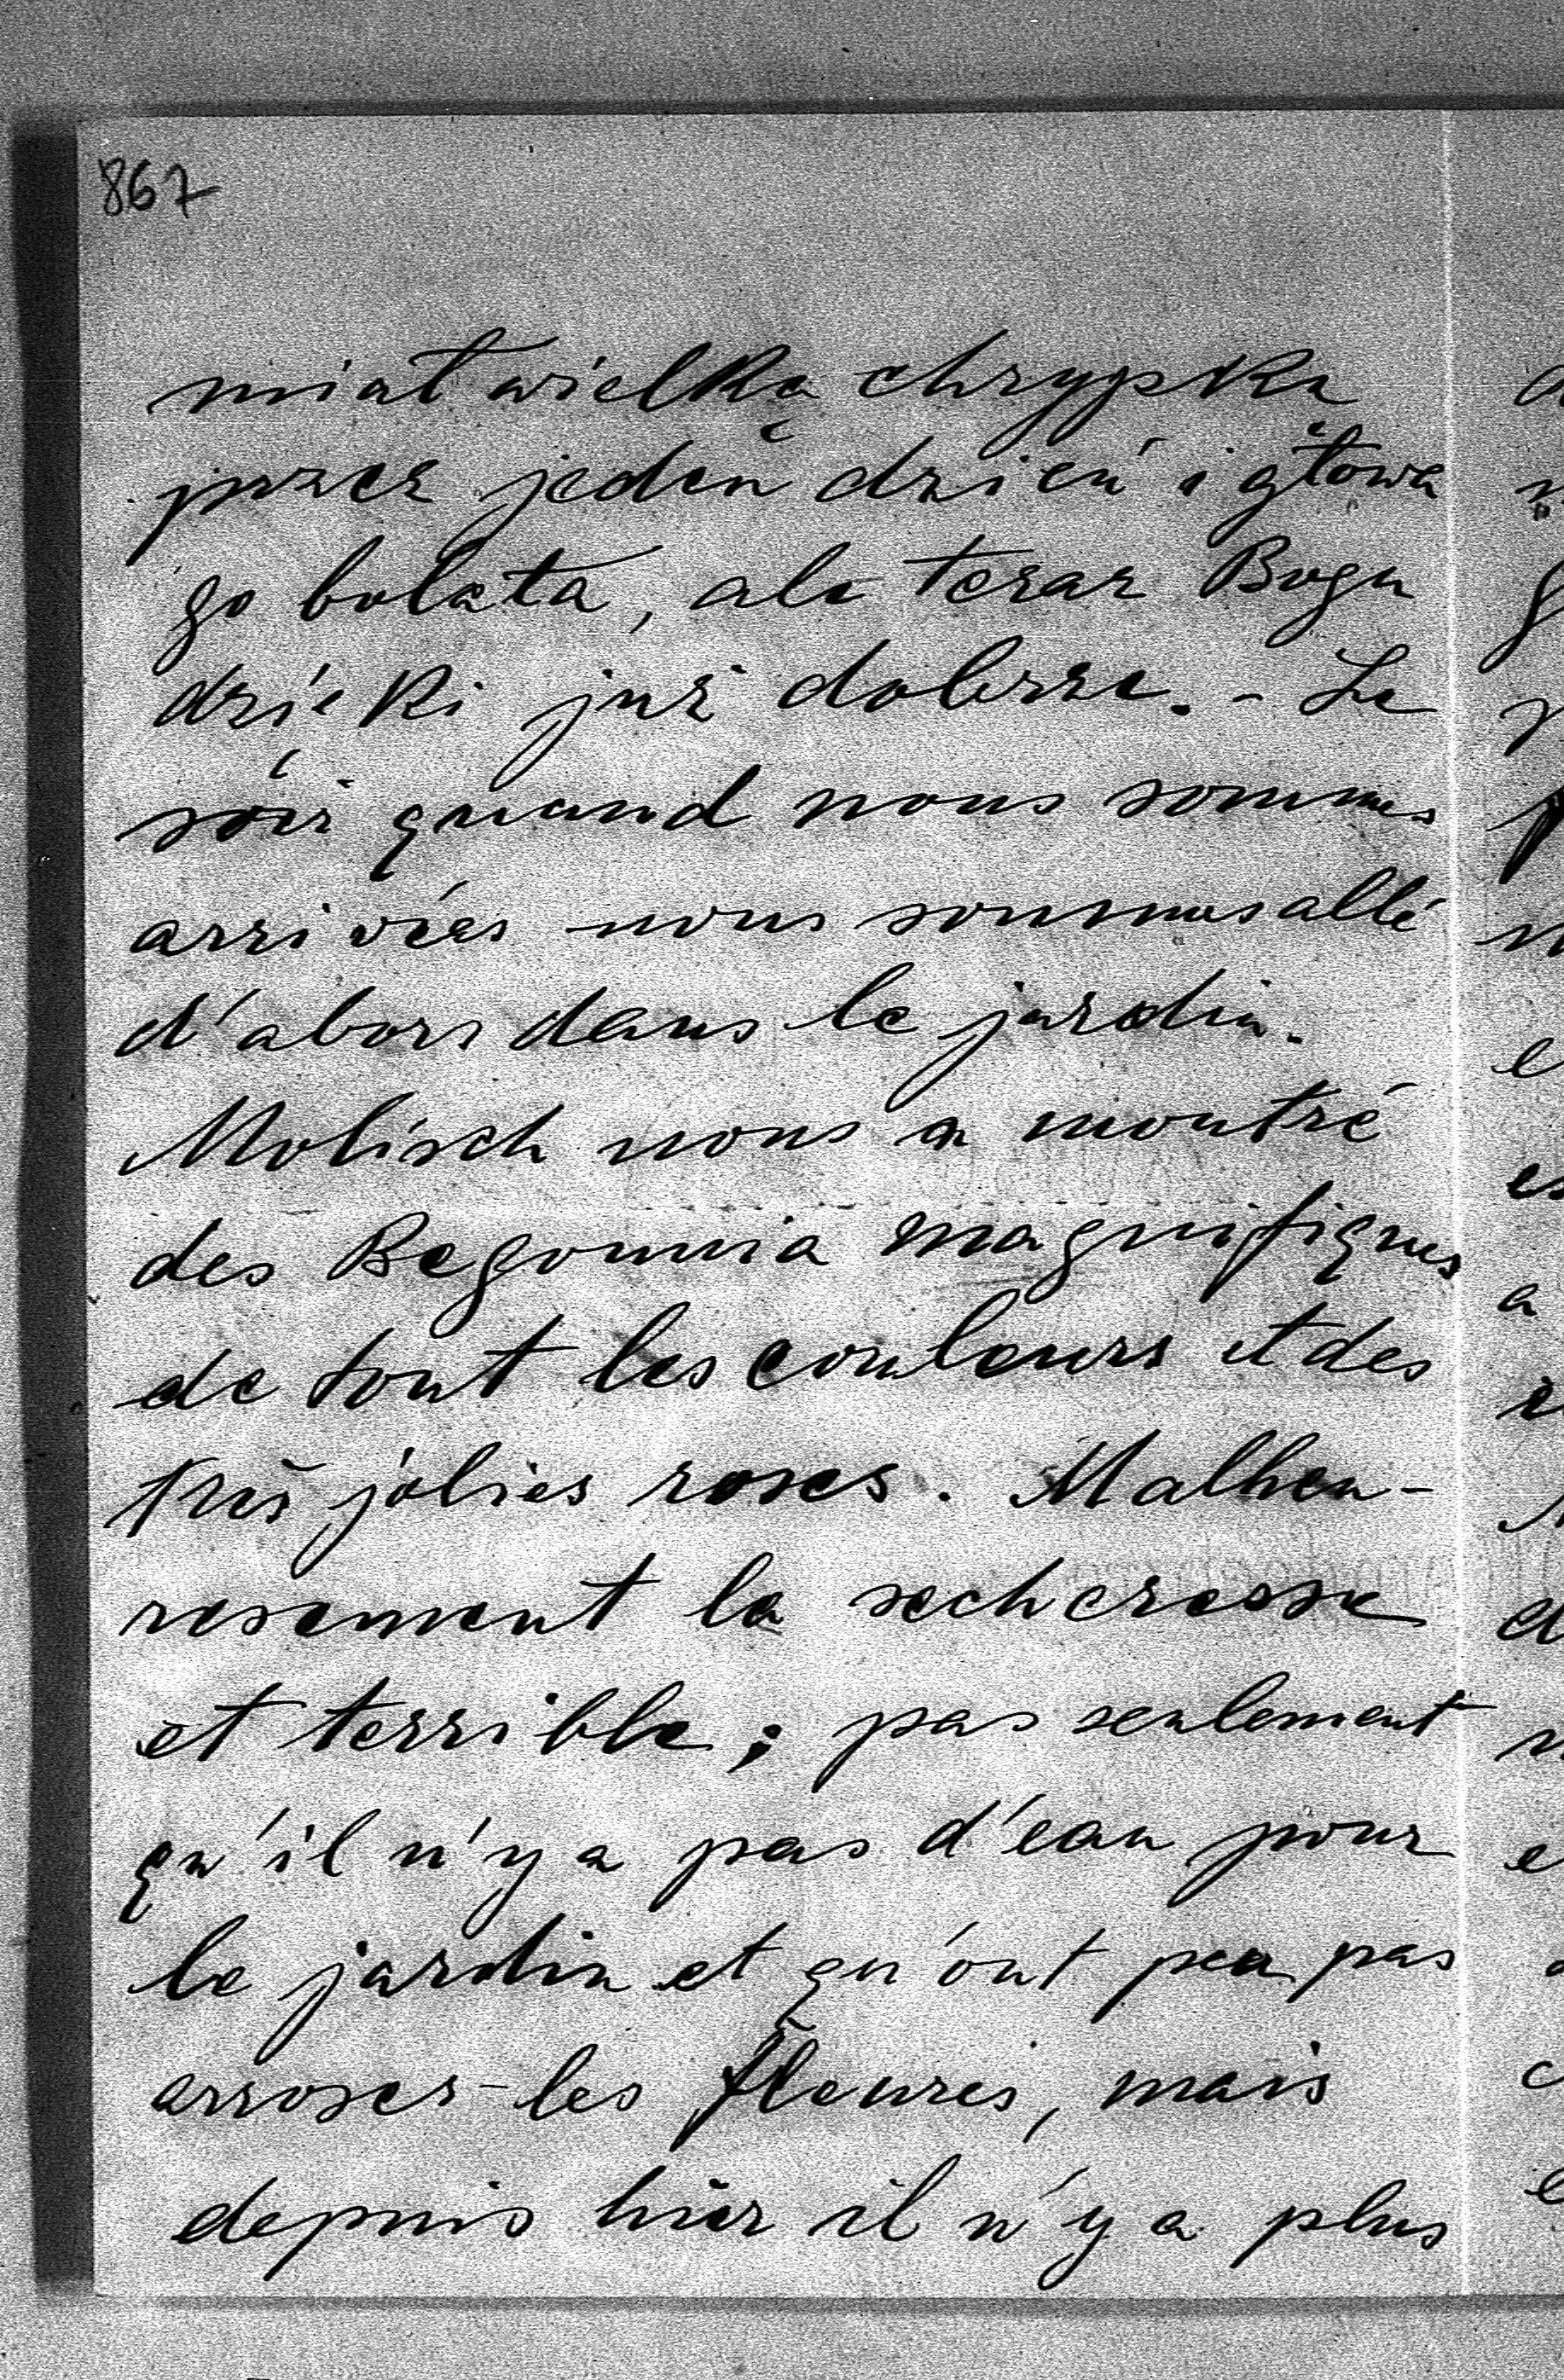 867
miał wielką chrypkę
przez jeden dzień i głowa
go bolała, ale teraz Bogu
dzięki już dobrze. - Le
soir quand nous sommes
arrivées nous sommes allé
d'abors dans le jardin.
Molisch nous a montré
des Begonnia magnifiques
de tout les couleurs et des
très jolies roses. Malheu-
resement la secheresse
et terrible; pas seulement
qu'il n'y a pas d'eau pour
le jardin et qu'ont peu pas
arroser les fleures, mais
depuis hier il n'y a plus